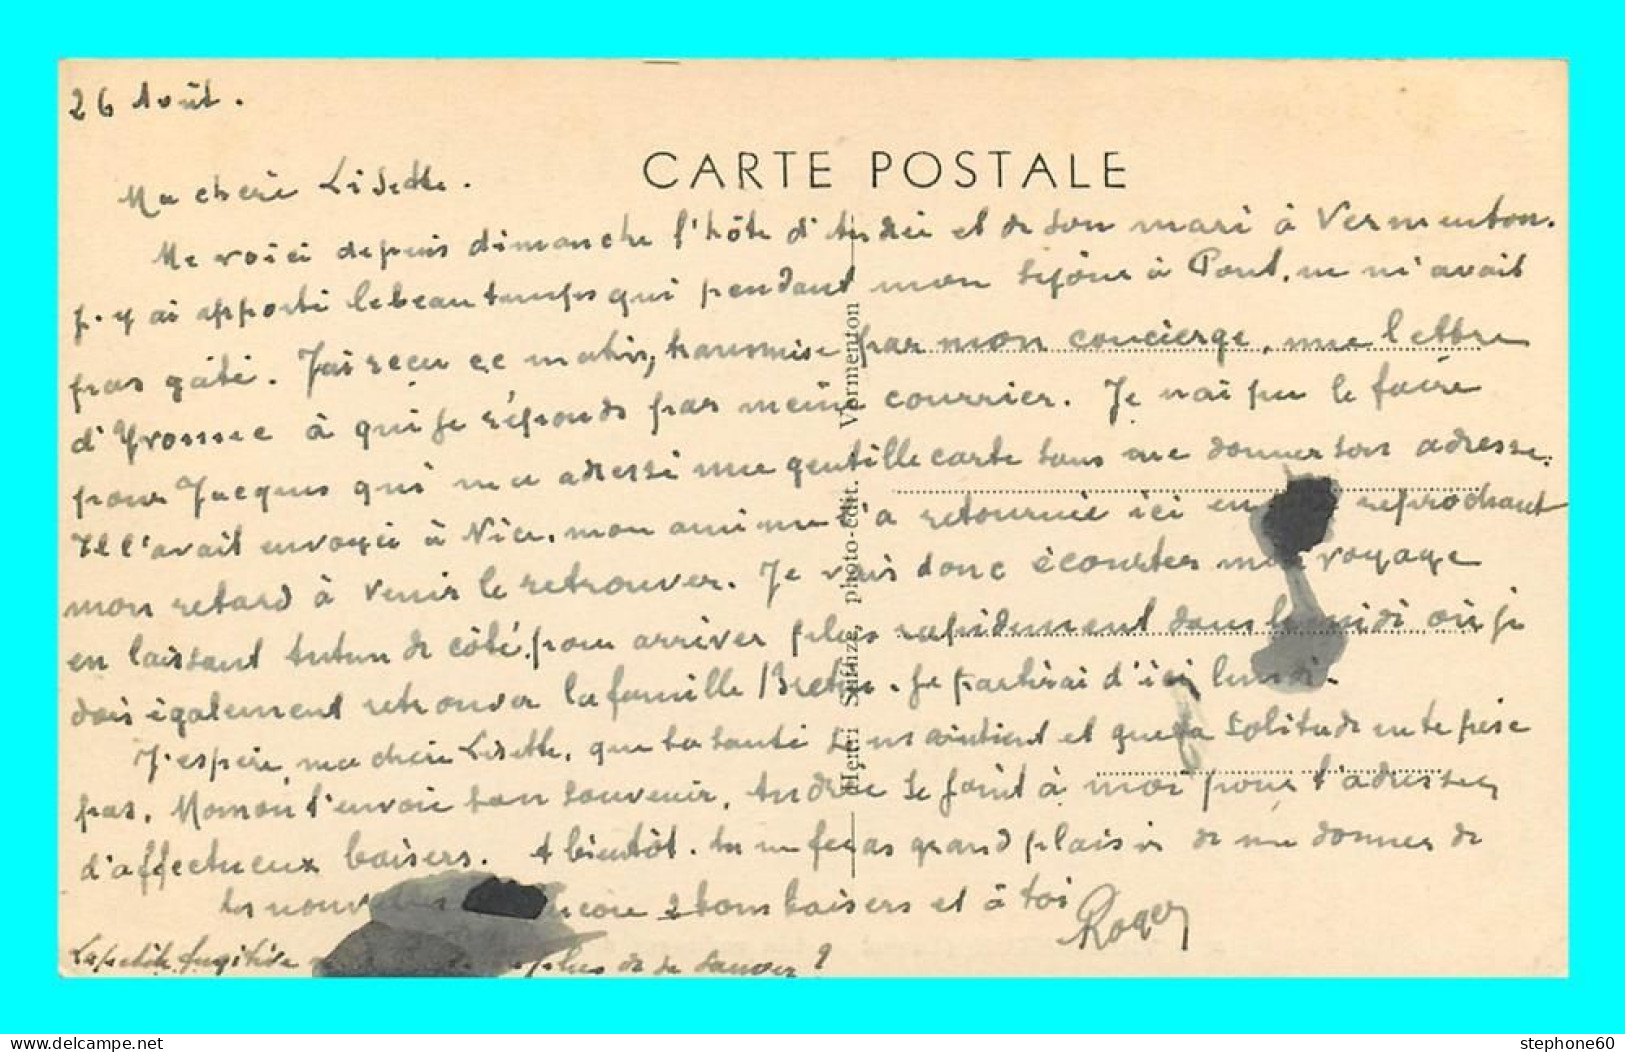 26 Août.
CARTE POSTALE
Ma chère Lisette.
Me voici depuis dimanche l'hôte d'Andrée et de son mari à Vermenton.
J'y ai apporté le beau temps qui pendant mon séjour à Pont, ne m'avait
pas gâté. J'ai reçu ce matin, transmise par mon concierge, une lettre
d'Yvonne à qui je réponds par même courrier. Je n'ai pu le faire
pour Jacques qui m'a adressé une gentille carte sans me donner son adresse.
Il l'avait envoyée à Nice, mon ami me l'a retournée ici en reprochant
mon retard à venir le retrouver. Je vais donc écourter mon voyage
en laissant Autun de côté, pour arriver plus rapidement dans le midi où je
dois également retrouver la famille Breton. Je partirai d'ici lundi.
J'espère, ma chère Lisette, que ta santé se maintient et que la solitude ne te pèse
pas. Momon t'envoie son souvenir, Andrée se joint à moi pour t'adresser
d'affectueux baisers. A bientôt. tu me feras grand plaisir de me donner de
tes nouvelles encore 2 bons baisers et à toi
Roger
La petite fugitive plus de se sauver ?
Henri Suffize, photo-édit. Vermenton
stephone60